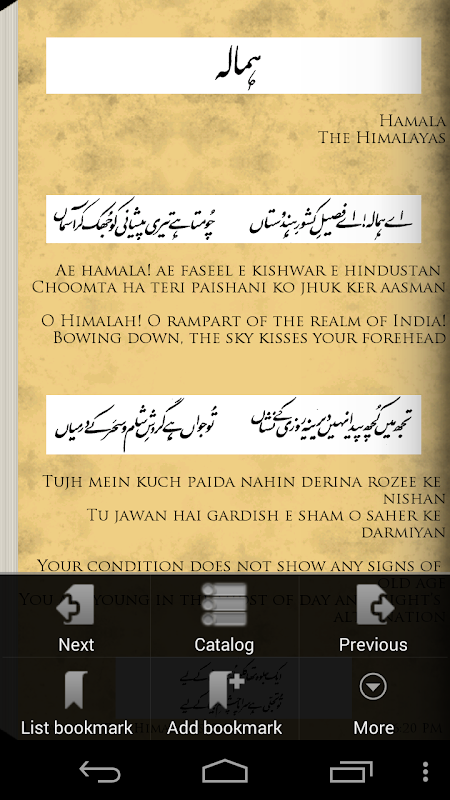 ہمالہ
Hamala
The Himalayas
اے ہمالہ! اے فصیلِ کشورِ ہندوستاں چُومتا ہے تیری پیشانی کو جُھک کر آسماں
Ae hamala! ae faseel e kishwar e hindustan
Choomta ha teri paishani ko jhuk ker aasman
O Himalah! O rampart of the realm of India!
Bowing down, the sky kisses your forehead
تجھ میں کُچھ پیدا نہیں دیرینہ روزی کے نشاں تُو جواں ہے گردشِ شام و سحَر کے درمیاں
Tujh mein kuch paida nahin derina rozee ke
nishan
Tu jawan hai gardish e sham o saher ke
darmiyan
Your condition does not show any signs of
old age
You are young in the midst of day and night's
alternation
Next
Catalog
Previous
List bookmark
Add bookmark
More